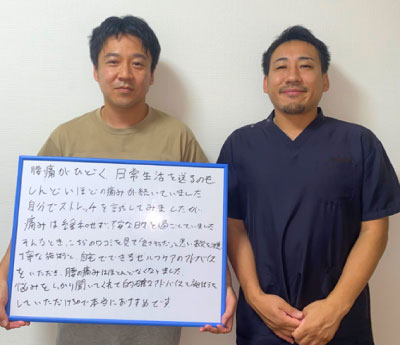 腰痛がひどく 日常生活を送るのも
しんどいほどの痛みが続いていました
自分でストレッチを試してみましたが
痛みは緩和せず、な日々を過ごしていました
そんなとき、しがのココを見て「ここだ」と思い
丁寧な施術と、自宅でできるセルフケアのアドバイス
をいただき、腰の痛みはほとんどなくなりました
悩みをしっかり聞いてくれて的確なアドバイスと施術を
していただけるので本当におすすめです